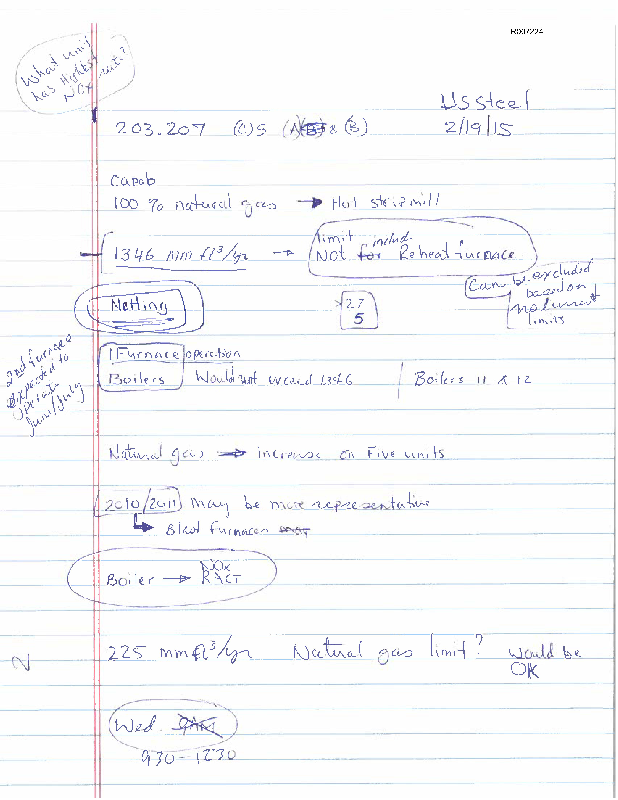 R007224
What unit
has Highest
NOx
US Steel
203.207 (a)5 (A)(B) & (B)
2/19/15
Capab
100 % natural gas → Hot strip mill
1346 mm ft³/yr → limit includ.
Not for Reheat furnace
Can be excluded
based on
limits
Netting
27
5
2nd furnace
expected to
operate
June/July
1 Furnace operation
Boilers Would not exceed 1346
Boilers 11 & 12
Natural gas → increase on Five units
2010/2011 may be more representative
↳ Blast Furnaces
Boiler → NOx
RACT
225 mmft³/yr Natural gas limit? Would be
OK
N
Wed. 9AM
930-1230